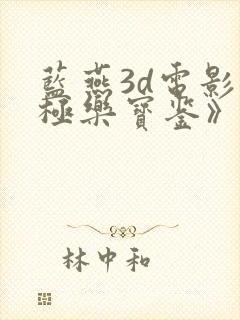 藍燕3d電影
極樂寶鉴》
林中和